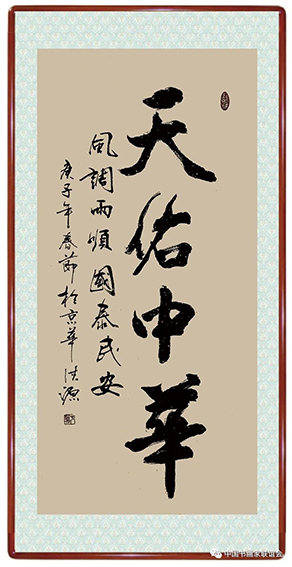 天佑中華
風調雨順國泰民安
庚子年春節於京華洪源
中国书画家联谊会